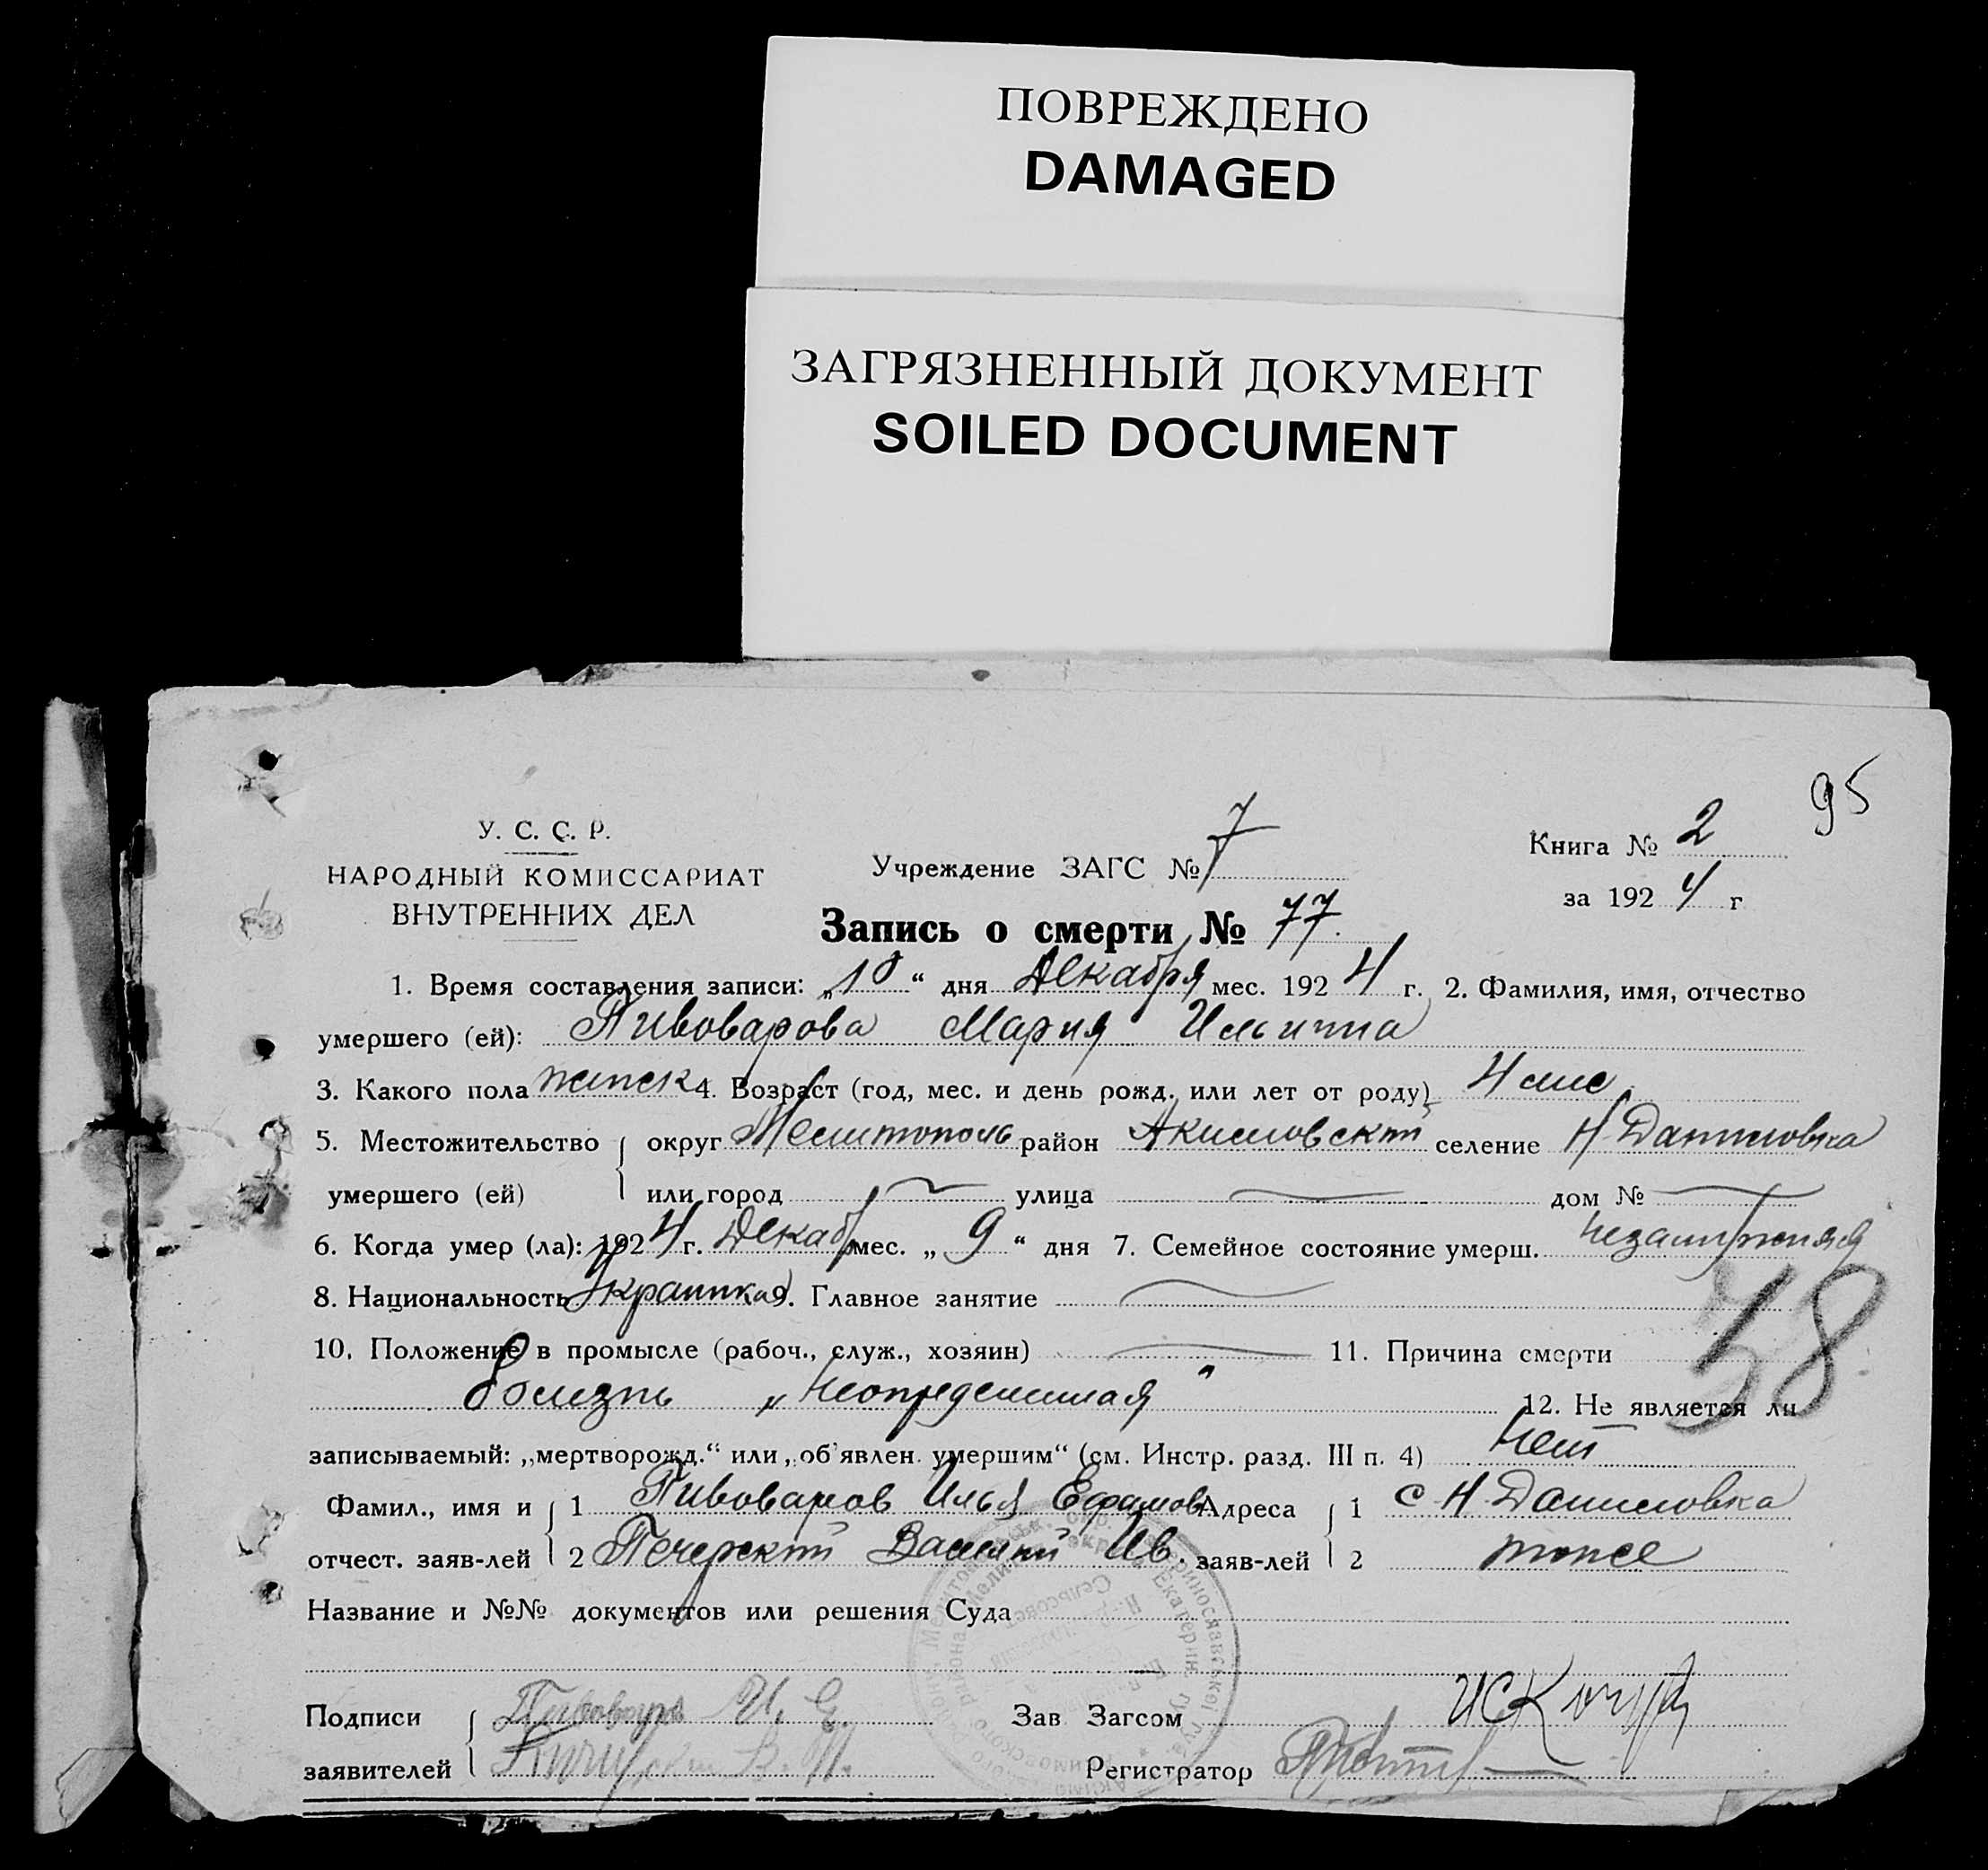 ПОВРЕЖДЕНО
DAMAGED
ЗАГРЯЗНЕННЫЙ ДОКУМЕНТ
SOILED DOCUMENT
95
У. С. С. Р.
НАРОДНЫЙ КОМИССАРИАТ
ВНУТРЕННИХ ДЕЛ
Учреждение ЗАГС № 7
Книга № 2
за 1924 г
Запись о смерти № 77.
1. Время составления записи: „10“ дня Декабря мес. 1924 г. 2. Фамилия, имя, отчество
умершего (ей): Пивоварова Мария Ильична
3. Какого пола женск 4. Возраст (год, мес. и день рожд. или лет от роду) 4 мес
5. Местожительство умершего (ей) округ Мелитополь район Акимовский селение Н-Даниловка
или город улица дом №
6. Когда умер (ла): 1924 г. Декабр мес. „9“ дня 7. Семейное состояние умерш. незамужняя
8. Национальность Украинка 9. Главное занятие
38
10. Положение в промысле (рабоч., служ., хозяин) 11. Причина смерти
болезнь „неопределимая“ 12. Не является ли
записываемый: „мертворожд.“ или „об'явлен. умершим“ (см. Инстр. разд. III п. 4) нет
Фамил., имя и отчест. заяв-лей 1 Пивоваров Илья Ефамов. Адреса заяв-лей 1 с Н-Даниловка
2 Печерский Василий Ив. 2 тоже
Название и №№ документов или решения Суда
Подписи заявителей Пивовар И. Е.
Зав Загсом
Регистратор